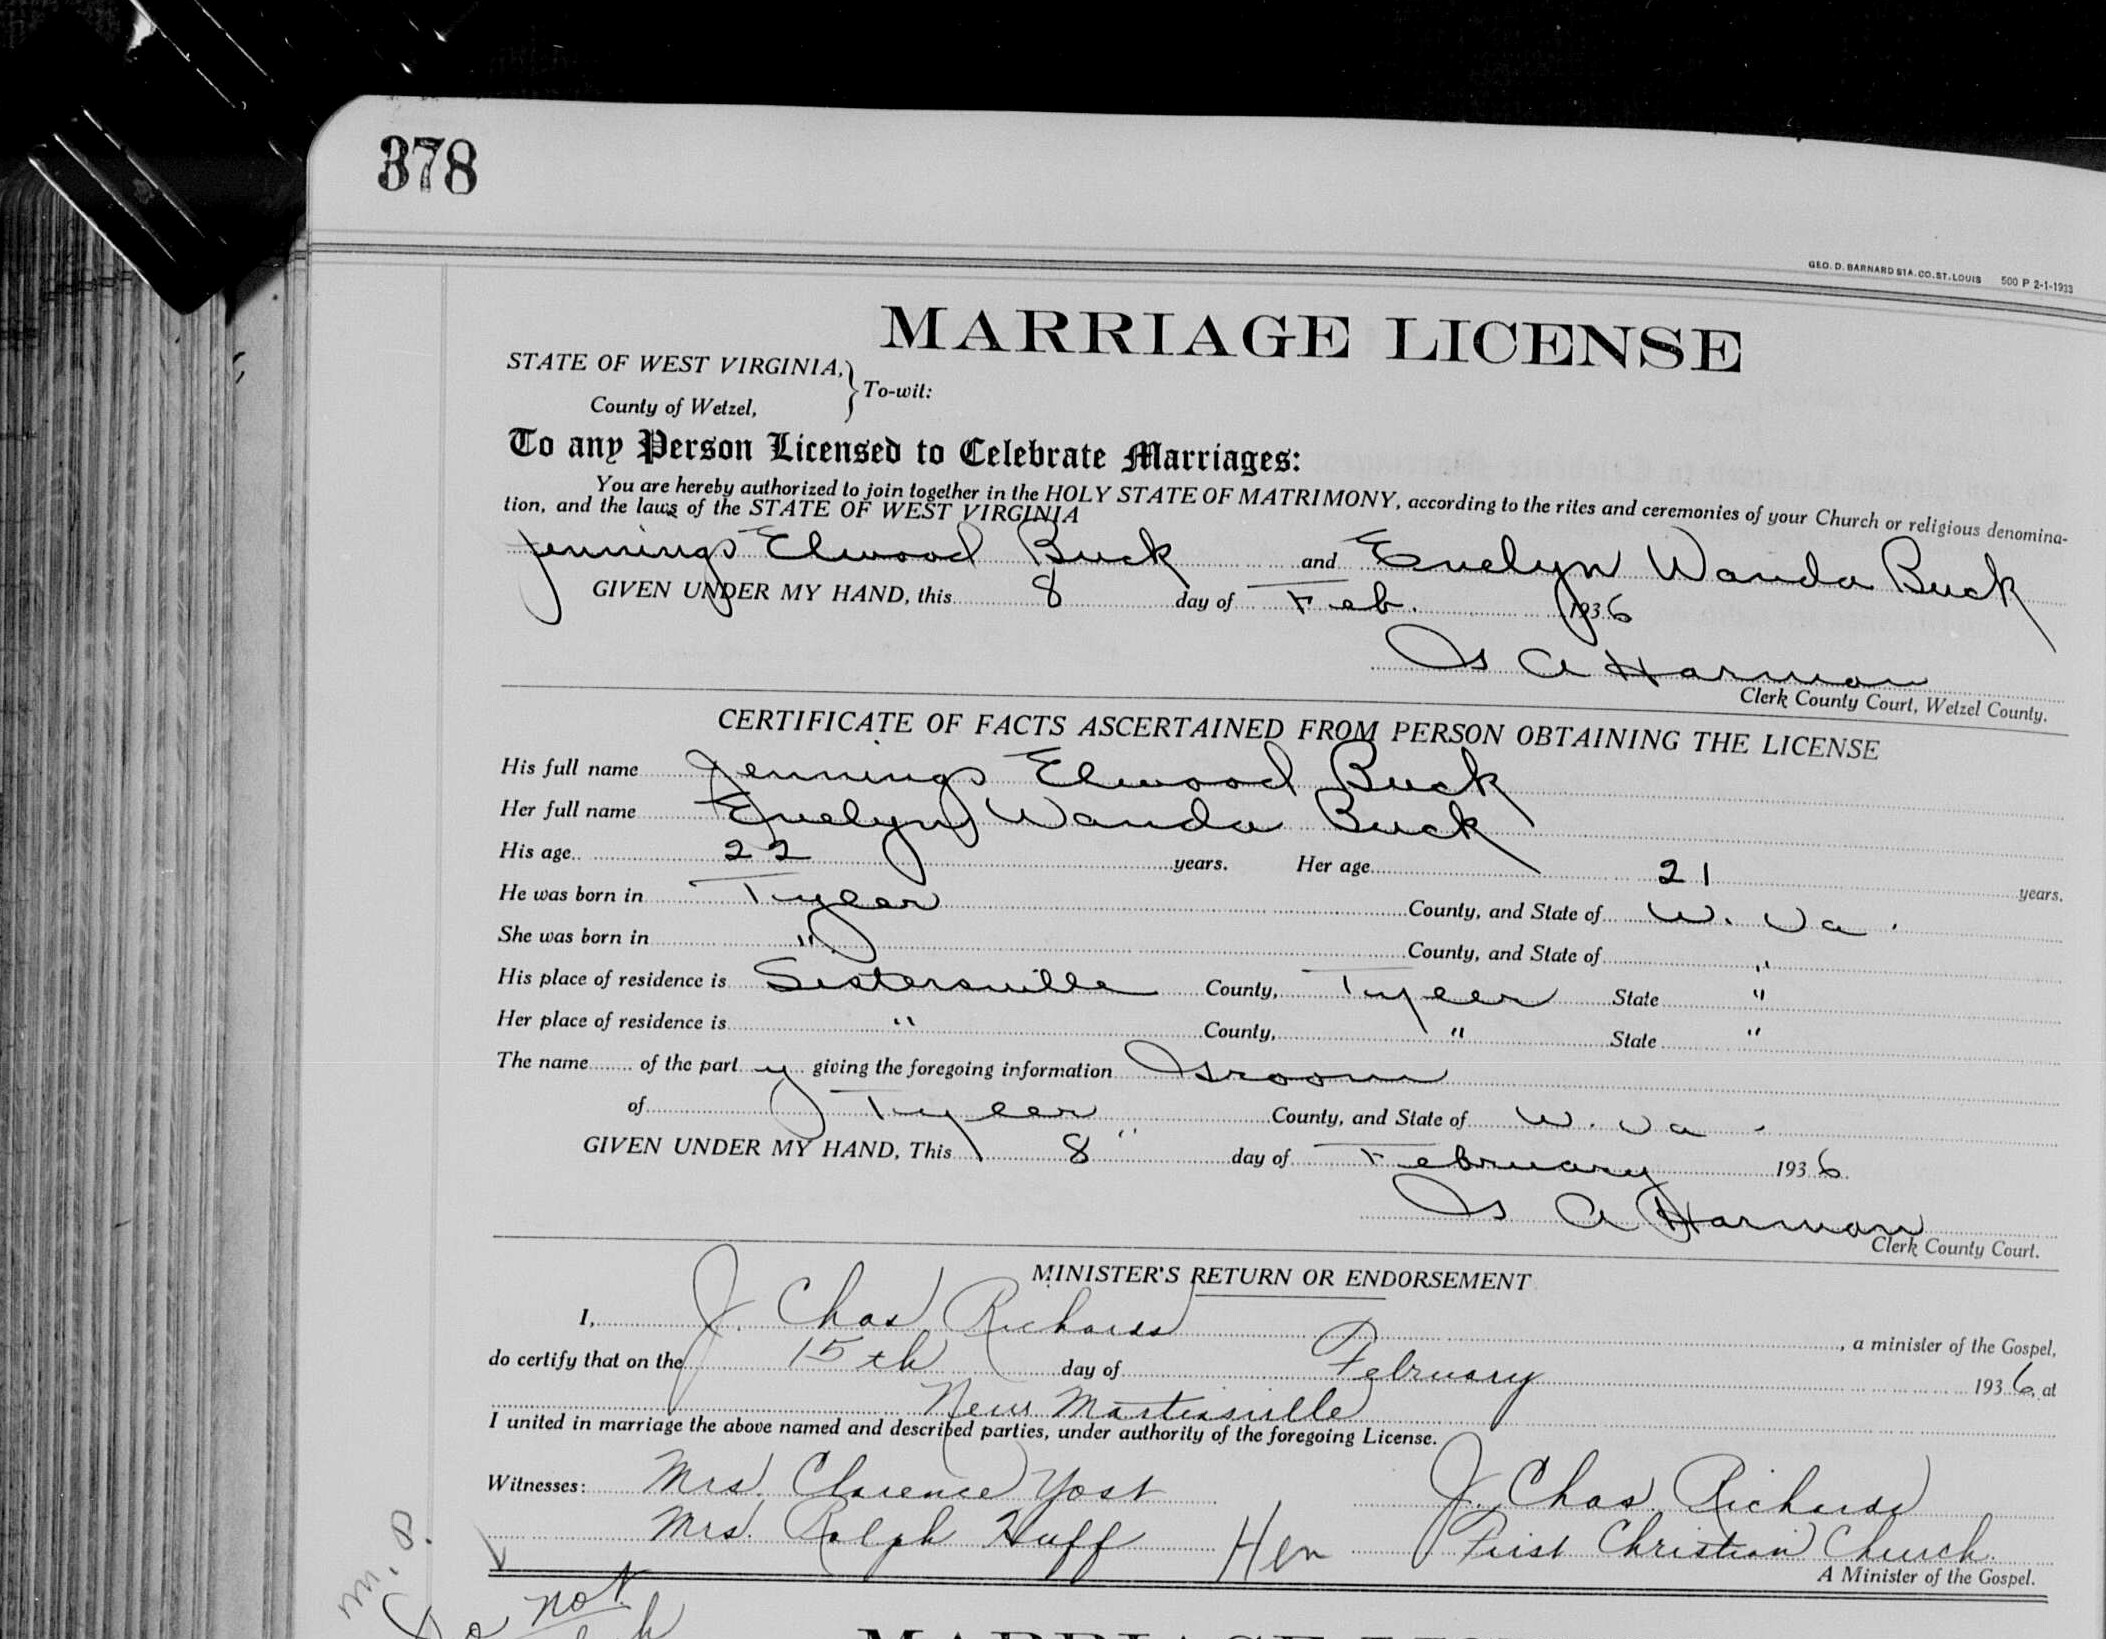 378
GEO. D. BARNARD STA. CO. ST. LOUIS 500 P 2-1-1933
MARRIAGE LICENSE
STATE OF WEST VIRGINIA,
County of Wetzel, } To-wit:
To any Person Licensed to Celebrate Marriages:
You are hereby authorized to join together in the HOLY STATE OF MATRIMONY, according to the rites and ceremonies of your Church or religious denomina-
tion, and the laws of the STATE OF WEST VIRGINIA
Jennings Elwood Buck and Evelyn Wanda Buck
GIVEN UNDER MY HAND, this 8 day of Feb. 1936
Is A Harman
Clerk County Court, Wetzel County.
CERTIFICATE OF FACTS ASCERTAINED FROM PERSON OBTAINING THE LICENSE
His full name Jennings Elwood Buck
Her full name Evelyn Wanda Buck
His age 22 years. Her age 21 years.
He was born in Tyler County, and State of W. Va.
She was born in " County, and State of "
His place of residence is Sistersville County, Tyler State "
Her place of residence is " County, " State "
The name of the part y giving the foregoing information Groom
of Tyler County, and State of W. Va.
GIVEN UNDER MY HAND, This 8" day of February 1936
Is A Harman
Clerk County Court.
MINISTER'S RETURN OR ENDORSEMENT
I, J. Chas Richards, a minister of the Gospel,
do certify that on the 15th day of February 1936, at
New Martinsville
I united in marriage the above named and described parties, under authority of the foregoing License.
Witnesses: Mrs. Clarence Yost J. Chas. Richards
Mrs. Ralph Huff First Christian Church.
A Minister of the Gospel.
Do not